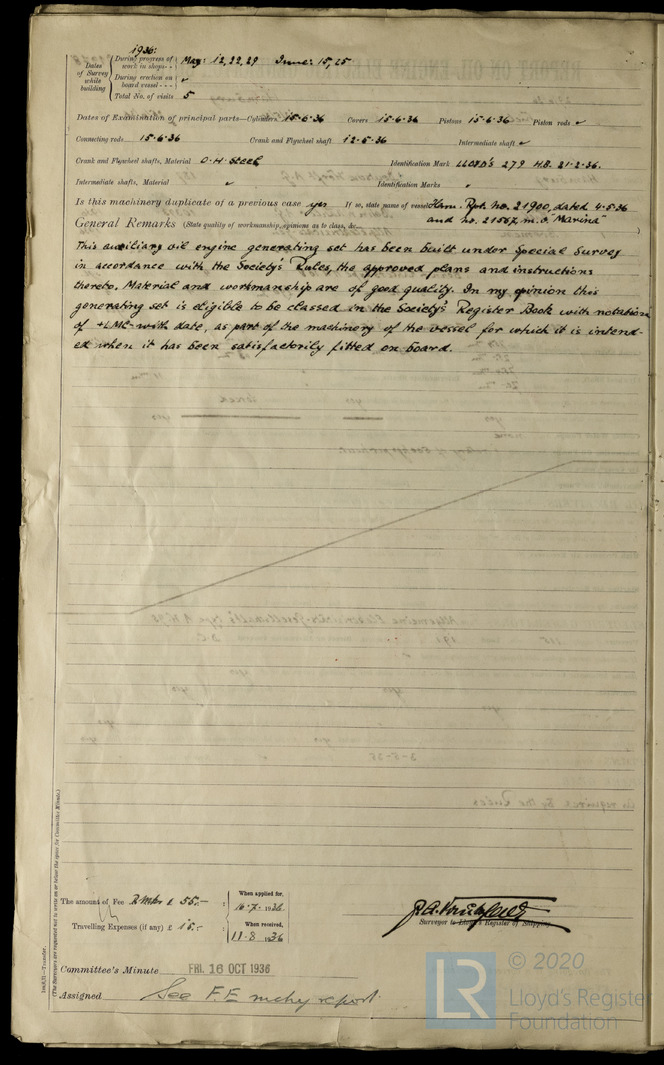 1936:
Dates of Survey while building
During progress of work in shops - - May: 12, 22, 29 June: 15, 25
During erection on board vessel - - - ✓
Total No. of visits 5
Dates of Examination of principal parts—Cylinders 15·6·36 Covers 15·6·36 Pistons 15·6·36 Piston rods ✓
Connecting rods 15·6·36 Crank and Flywheel shaft 12·5·36 Intermediate shaft ✓
Crank and Flywheel shafts, Material O.H. Steel Identification Mark LLOYD'S 279 H.B. 21·2·36.
Intermediate shafts, Material ✓ Identification Marks ✓
Is this machinery duplicate of a previous case yes If so, state name of vessel Ham. Rpt. No. 21900, dated 4·5·36
and No. 21567 m.v. "Marina"
General Remarks (State quality of workmanship, opinions as to class, &c.
This auxiliary oil engine generating set has been built under Special Survey
in accordance with the Society's Rules, the approved plans and instructions
thereto. Material and workmanship are of good quality. In my opinion this
generating set is eligible to be classed in the Society's Register Book with notation
of +LMC- with date, as part of the machinery of the vessel for which it is intend-
ed when it has been satisfactorily fitted on board.
The amount of Fee R.Mks £ 55.— : When applied for, 16·7· 1936
Travelling Expenses (if any) £ 15.— : When received, 11·8 1936
Surveyor to Lloyd's Register of Shipping.
Committee's Minute FRI. 16 OCT 1936
Assigned See F.E. mchy report.
(The Surveyors are requested not to write on or below the space for Committee Minute.)
© 2020
Lloyd's Register
Foundation
LR